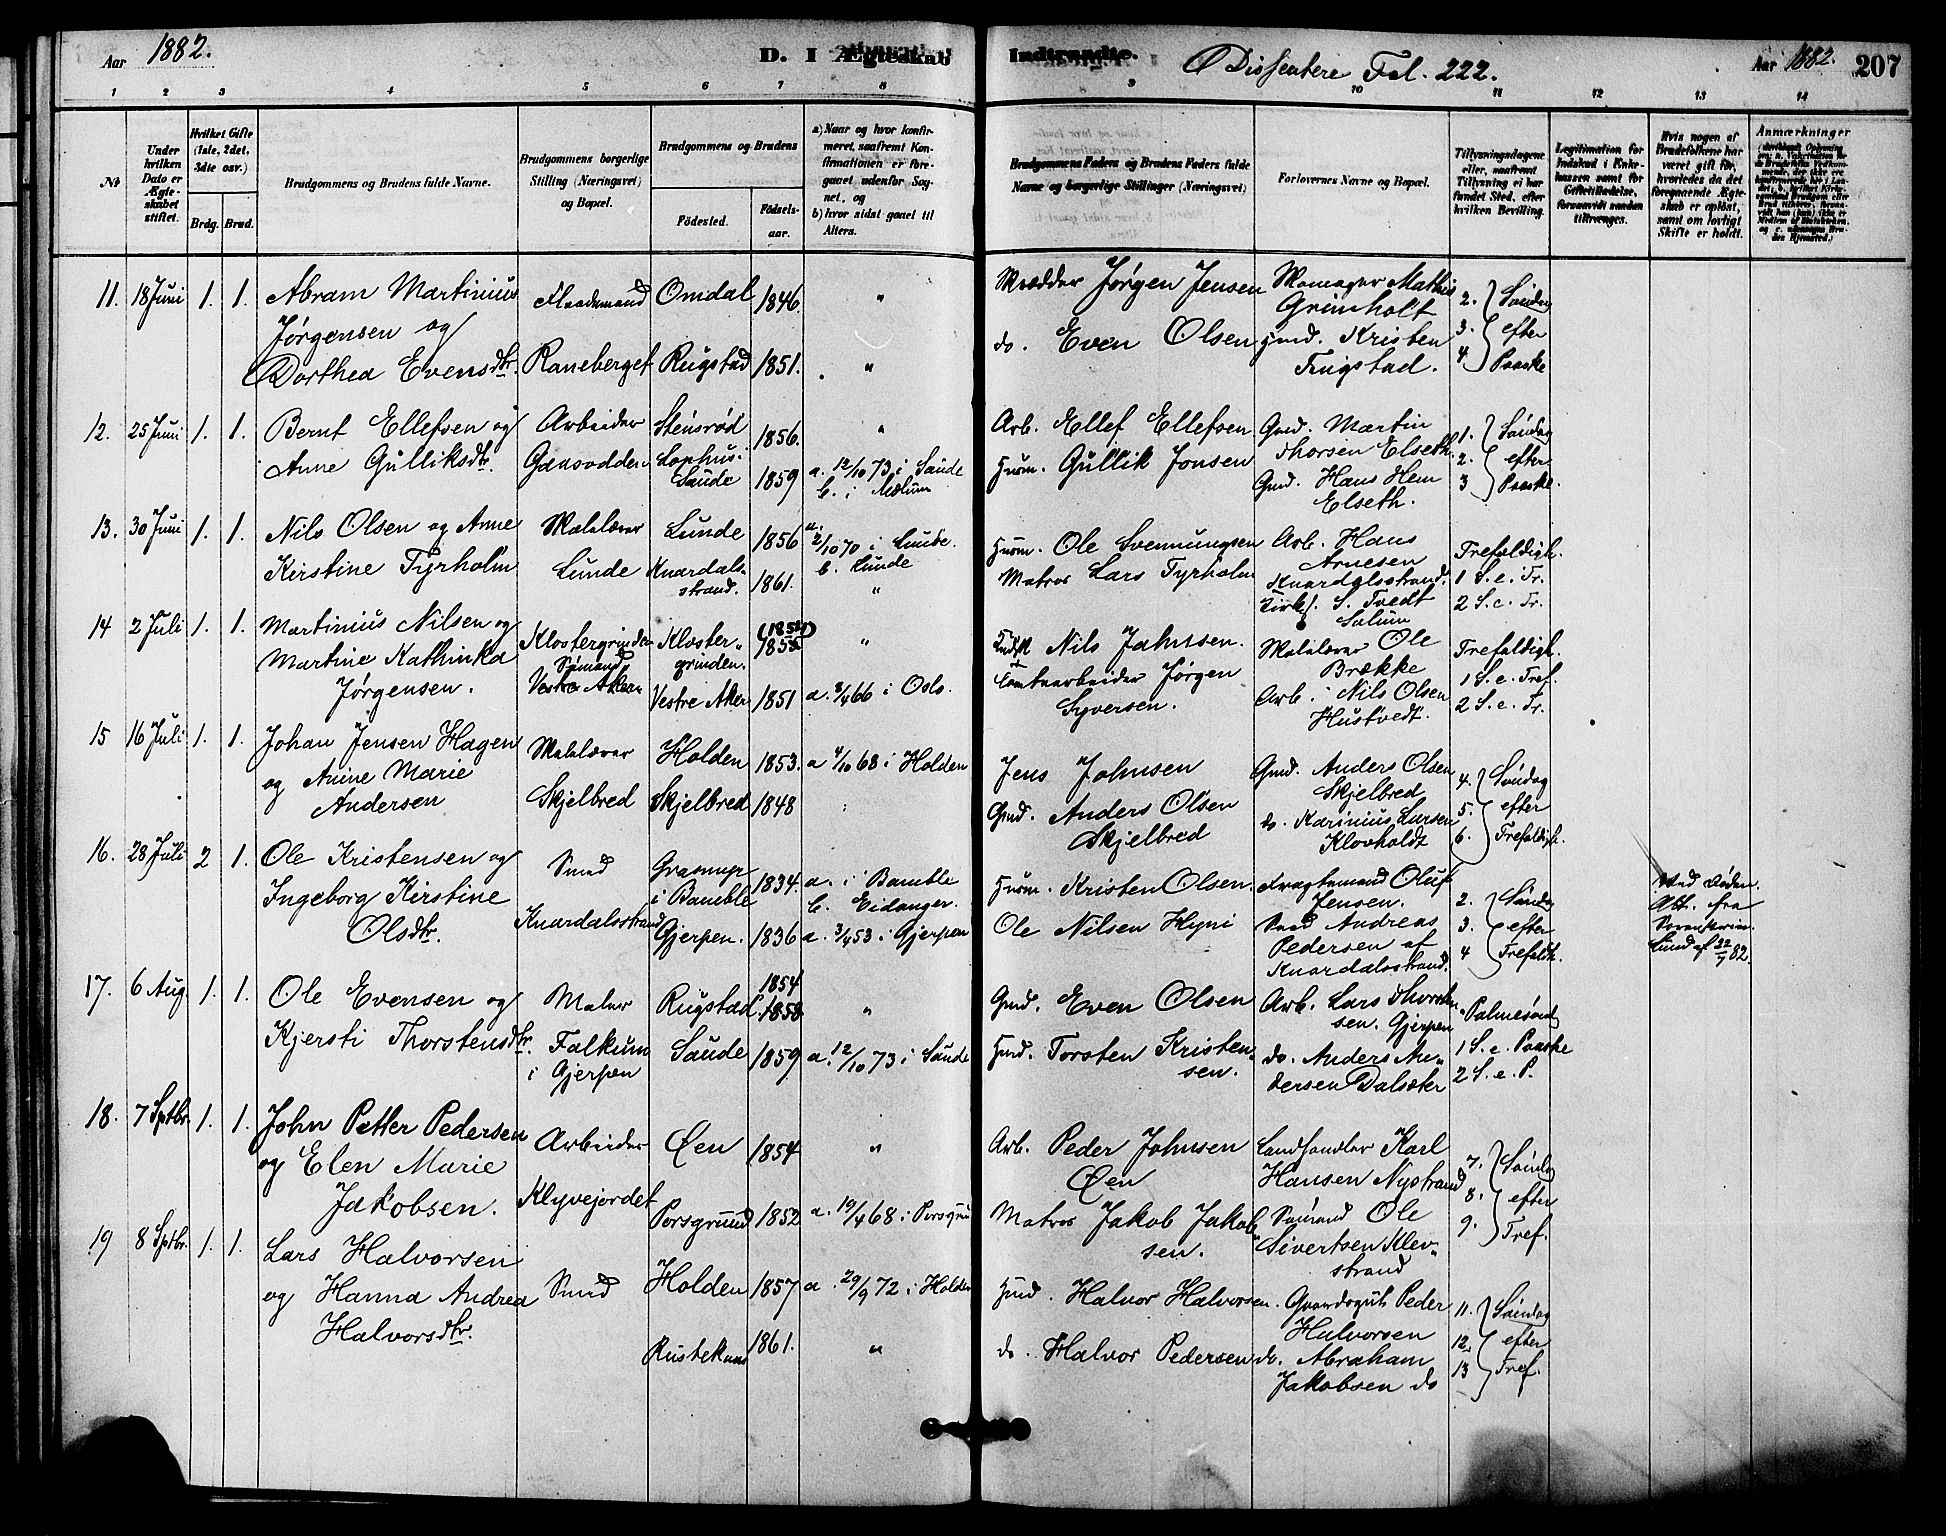 Aar 1882. D. I Ægteskab Indtraadte. Dissentere Fol. 222. Aar 1882. 207
1 2 3 4 5 6 7 8 9 10 11 12 13 14
№
Under hvilken Dato er Ægteskabet stiftet.
Hvilket Gifte (1ste, 2det, 3die osv.)
Brdg. Brud.
Brudgommens og Brudens fulde Navne.
Brudgommens borgerlige Stilling (Næringsvei) og Bopæl.
Brudgommens og Brudens
Fødested. Fødselsaar.
a) Naar og hvor konfirmeret, saafremt Konfirmationen er foregaaet udenfor Sognet, og
b) hvor sidst gaaet til Alters.
Brudgommens Faders og Brudens Faders fulde Navne og borgerlige Stillinger (Næringsvei)
Forlovernes Navne og Bopæl.
Tillysningsdagene eller, saafremt Tillysning ei har fundet Sted, efter hvilken Bevilling.
Legitimation for Indskud i Enkekassen samt for Giftetilladelse, forsaavidt saadan tiltrænges.
Hvis nogen af Brudefolkene har været gift før, hvorledes da det foregaaende Ægteskab er opløst, samt om lovligt Skifte er holdt.
Anmærkninger
11. 18 Juni 1. 1. Abram Martinius Flaademand Omdal 1846. " Skrædder Jørgen Jensen Skomager Mathis 2. Søndag
Jørgensen og Grimholt 3. efter
Dorthea Evensdtr. Raneberget Rugstad 1851. " do. Even Olsen gmd. Kristen 4. Paaske
Tingstad.
12. 25 Juni 1. 1. Bernt Ellefsen og Arbeider Stensrød 1856. " Arb. Ellef Ellefsen Gmd. Martin 1. Søndag
Anne Gulliksdtr. Gaasodden Lophus. Thorsen Elseth. 2. efter
Saude 1859 a. 12/10 73 i Saude Husm. Gullik Jonsen Gmd. Hans Hem 3 Paaske.
b. i Mælum Elseth.
13. 30 Juni 1. 1. Nils Olsen og Anne Skolelærer Lunde 1856 a. 2/10 70 i Lunde. Husm. Ole Svennungsen Arb. Hans Trefoldigh.
b. Lunde Arnesen
Kirstine Tyrholm Lunde Knardalsstrand. 1861. " Matros Lars Tyrholm Knardalsstrand. 1 S. e. Tr.
Kirks. S. Tvedt 2 S. e. Tr.
Solum
14 2 Juli 1. 1. Martinius Nilsen og Klostergrinden Kloster- (1854) " Nils Jahnsen. Skolelærer Ole Trefoldigh.
Martine Kathinka Sømand grinden. 1855 Brække 1 S. e. Tref.
Jørgensen. Vestre Aker Vestre Aker 1851 a. 3/4 66 i Oslo. Jørgen Arb. Nils Olsen 2 S. e. Tr.
Syversen. Hustvedt.
15 16 Juli 1. 1. Johan Jensen Hagen Skolelærer Holden 1853. a 4/10 68 i Holden Jens Johnsen Gmd. Anders Olsen 4. Søndag
og Anine Marie Skjelbred 5. efter
Andersen Skjelbred Skjelbred 1848 Gmd. Anders Olsen do. Karinius Larsen 6. Trefoldigh.
Skjelbred Klovholdt
16. 28 Juli 2 1. Ole Kristensen og Smed Grasmyr 1834. a. i Bamble Husm. Kristen Olsen. Fragtemand Oluf 2. Søndag Ved Døden.
i Bamble b. Eidanger. Jensen. Att. fra
Ingeborg Kirstine Knardalsstrand Gjerpen. 1836 a. 3/4 53 i Gjerpen Ole Nilsen Hyni Smed Andreas 3. efter Sorenskriver
Olsdtr. Pedersen af 4 Trefoldh. Lund af 22/7 82.
Knardalsstrand.
17. 6 Aug. 1. 1. Ole Evensen og Maler Rugstad 1854 " Gmd. Even Olsen Arb. Lars Thorsten- Palmesønd
1858. sen. Gjerpen
Kjersti Thorstensdtr. Falkum Saude 1859 a. 12/10 73 i Saude Husm. Torsten Kristen- do. Anders An- 1 S. e. Paaske
i Gjerpen sen. dersen Dalsæter 2 S. e. P.
18. 7 Septbr. 1. 1. John Petter Pedersen Arbeider Øen 1854 " Arb. Peder Johnsen Landhandler Karl 7. Søndag
og Elen Marie Øen Hansen Nystrand 8. efter
Jakobsen. Klyvejordet Porsgrund 1852 a. 19/4 68 i Porsgrun Matros Jakob Jakob- Sømand Ole 9. Tref.
sen. Sivertsen Klev-
strand
19 8 Septbr. 1. 1. Lars Halvorsen
og Hanna Andrea Smed Holden 1857 a. 29/9 72 i Holden Husm. Halvor Halvorsen. Gaardsgut Peder 11. Søndag
Halvorsdtr. Halvorsen 12. efter
1861. " do. Halvor Pedersen do. Abraham 13 Tref.
Jakobsen do